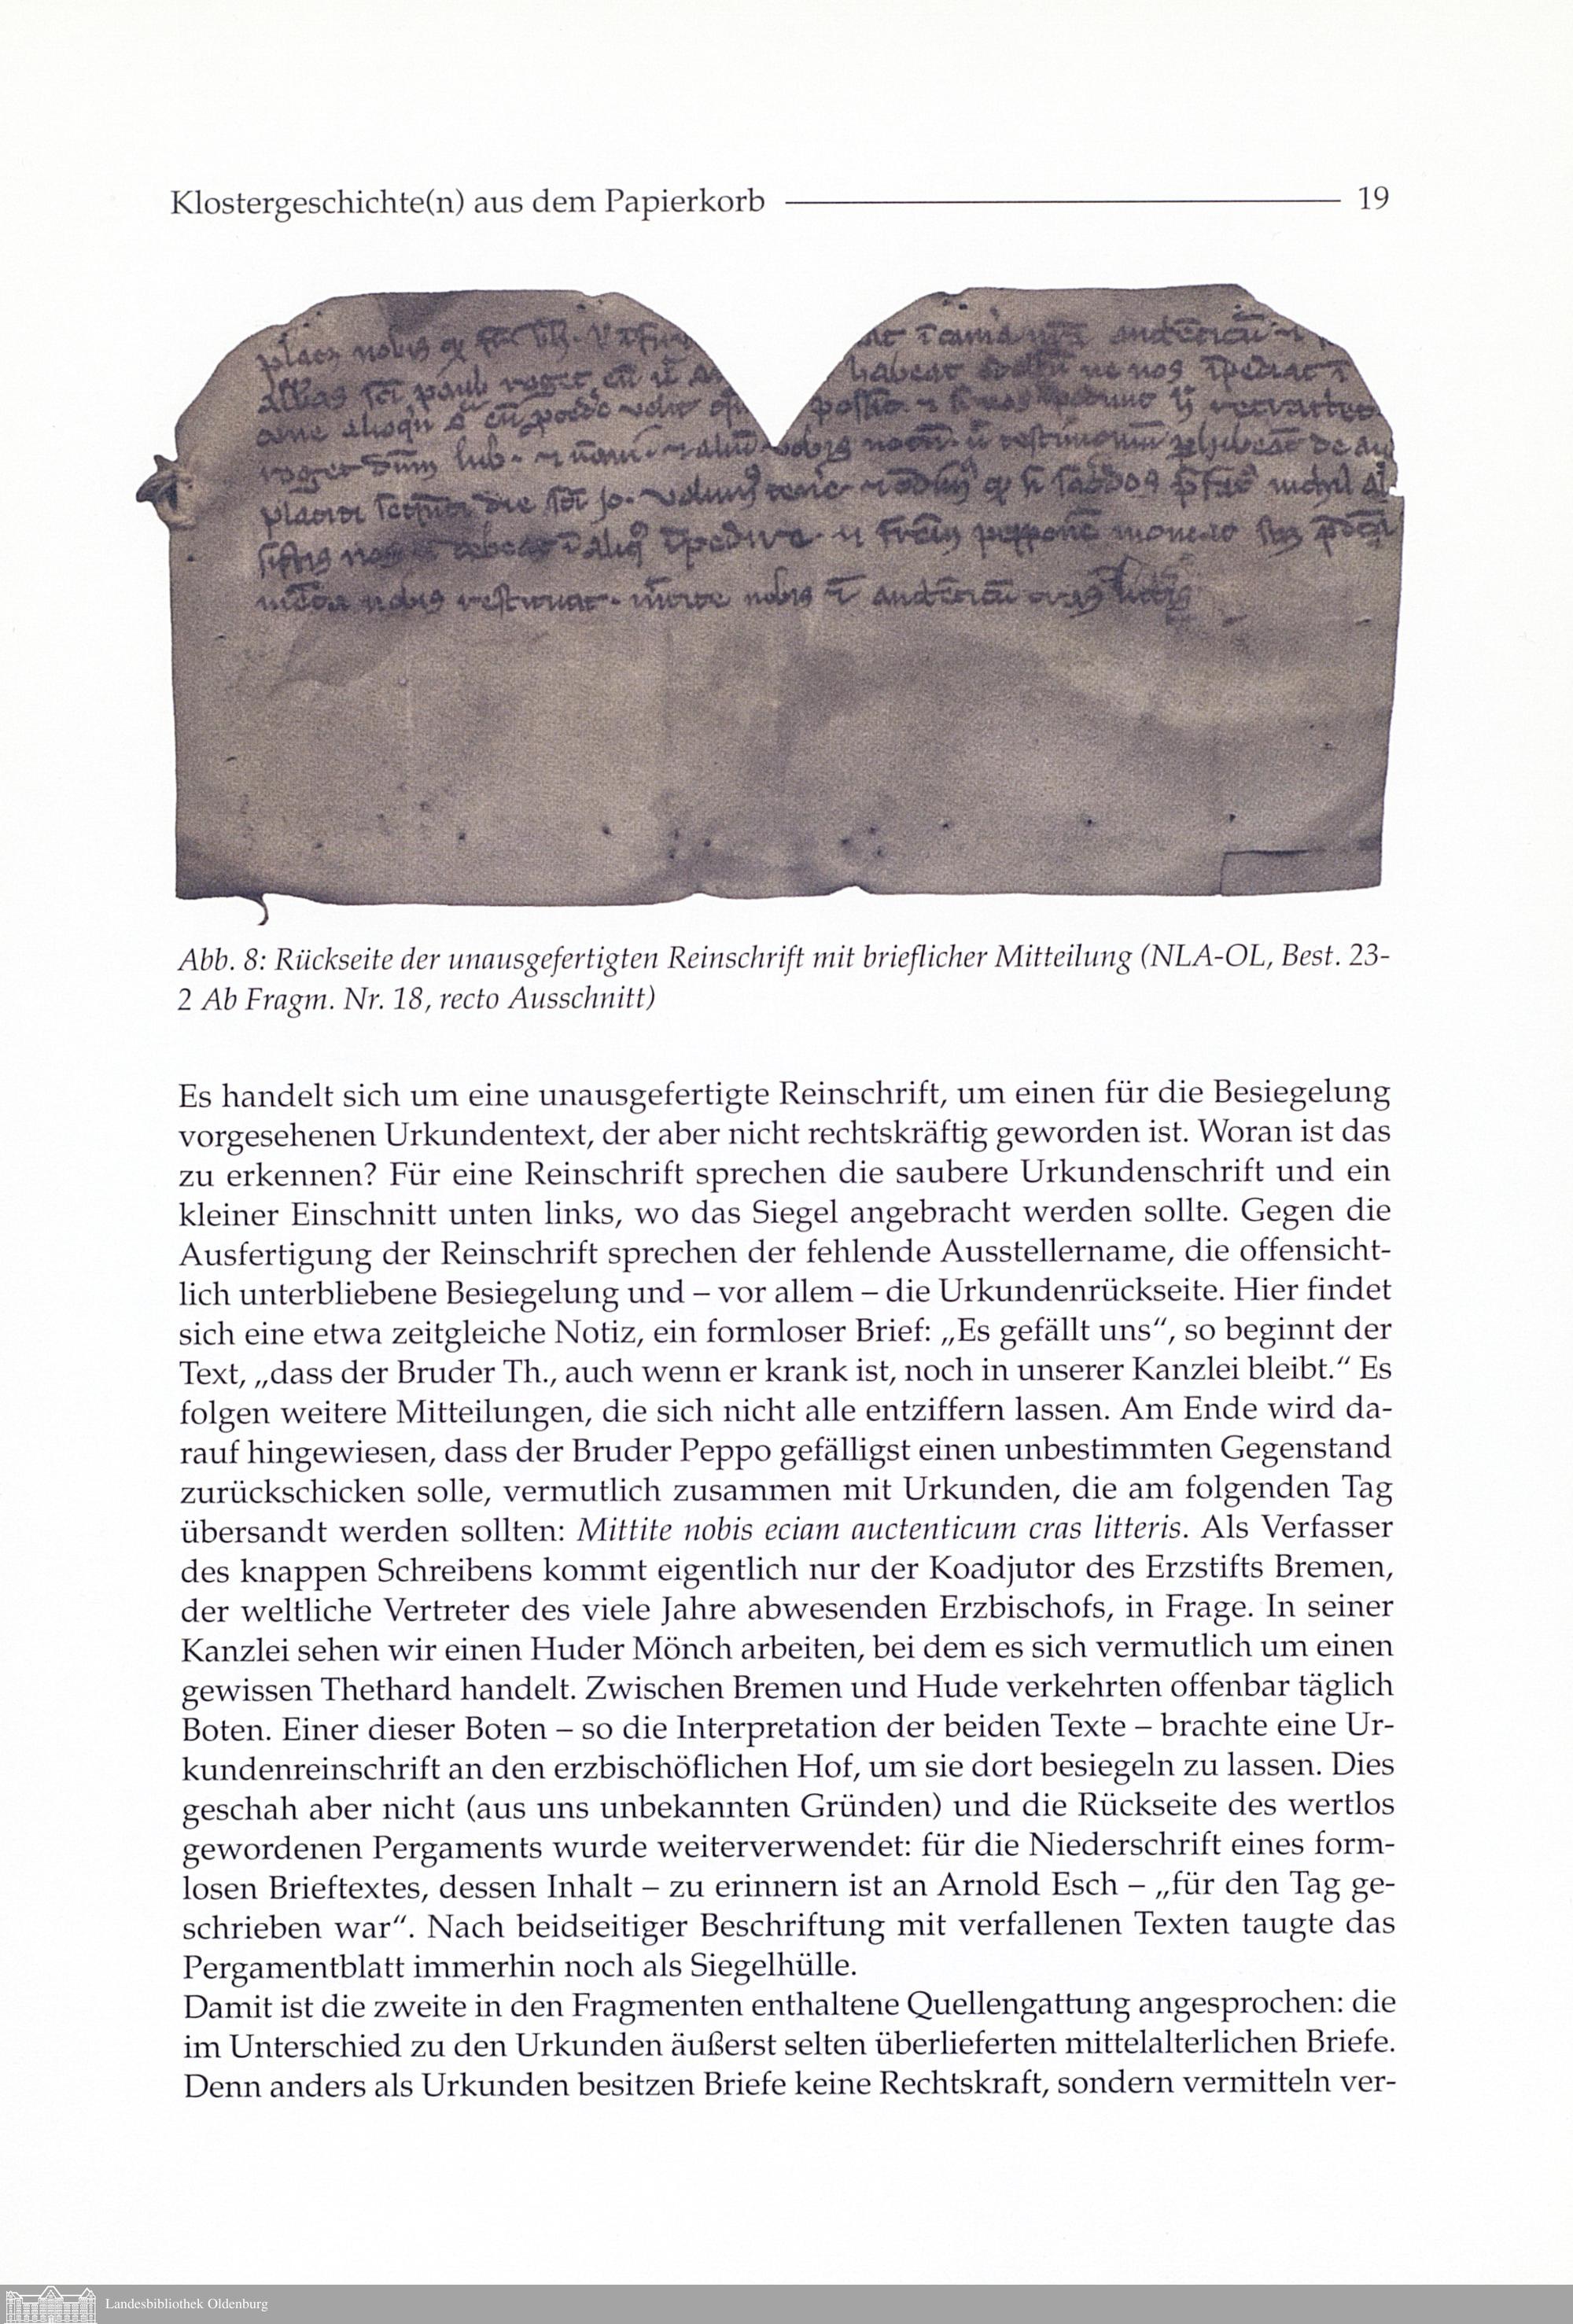 Klostergeschichte(n) aus dem Papierkorb 19
Abb. 8: Rückseite der unausgefertigten Reinschrift mit brieflicher Mitteilung (NLA-OL, Best. 23-
2 Ab Fragm. Nr. 18, recto Ausschnitt)
Es handelt sich um eine unausgefertigte Reinschrift, um einen für die Besiegelung
vorgesehenen Urkundentext, der aber nicht rechtskräftig geworden ist. Woran ist das
zu erkennen? Für eine Reinschrift sprechen die saubere Urkundenschrift und ein
kleiner Einschnitt unten links, wo das Siegel angebracht werden sollte. Gegen die
Ausfertigung der Reinschrift sprechen der fehlende Ausstellername, die offensicht-
lich unterbliebene Besiegelung und – vor allem – die Urkundenrückseite. Hier findet
sich eine etwa zeitgleiche Notiz, ein formloser Brief: „Es gefällt uns“, so beginnt der
Text, „dass der Bruder Th., auch wenn er krank ist, noch in unserer Kanzlei bleibt.“ Es
folgen weitere Mitteilungen, die sich nicht alle entziffern lassen. Am Ende wird da-
rauf hingewiesen, dass der Bruder Peppo gefälligst einen unbestimmten Gegenstand
zurückschicken solle, vermutlich zusammen mit Urkunden, die am folgenden Tag
übersandt werden sollten: Mittite nobis eciam auctenticum cras litteris. Als Verfasser
des knappen Schreibens kommt eigentlich nur der Koadjutor des Erzstifts Bremen,
der weltliche Vertreter des viele Jahre abwesenden Erzbischofs, in Frage. In seiner
Kanzlei sehen wir einen Huder Mönch arbeiten, bei dem es sich vermutlich um einen
gewissen Thethard handelt. Zwischen Bremen und Hude verkehrten offenbar täglich
Boten. Einer dieser Boten – so die Interpretation der beiden Texte – brachte eine Ur-
kundenreinschrift an den erzbischöflichen Hof, um sie dort besiegeln zu lassen. Dies
geschah aber nicht (aus uns unbekannten Gründen) und die Rückseite des wertlos
gewordenen Pergaments wurde weiterverwendet: für die Niederschrift eines form-
losen Brieftextes, dessen Inhalt – zu erinnern ist an Arnold Esch – „für den Tag ge-
schrieben war“. Nach beidseitiger Beschriftung mit verfallenen Texten taugte das
Pergamentblatt immerhin noch als Siegelhülle.
Damit ist die zweite in den Fragmenten enthaltene Quellengattung angesprochen: die
im Unterschied zu den Urkunden äußerst selten überlieferten mittelalterlichen Briefe.
Denn anders als Urkunden besitzen Briefe keine Rechtskraft, sondern vermitteln ver-
Landesbibliothek Oldenburg